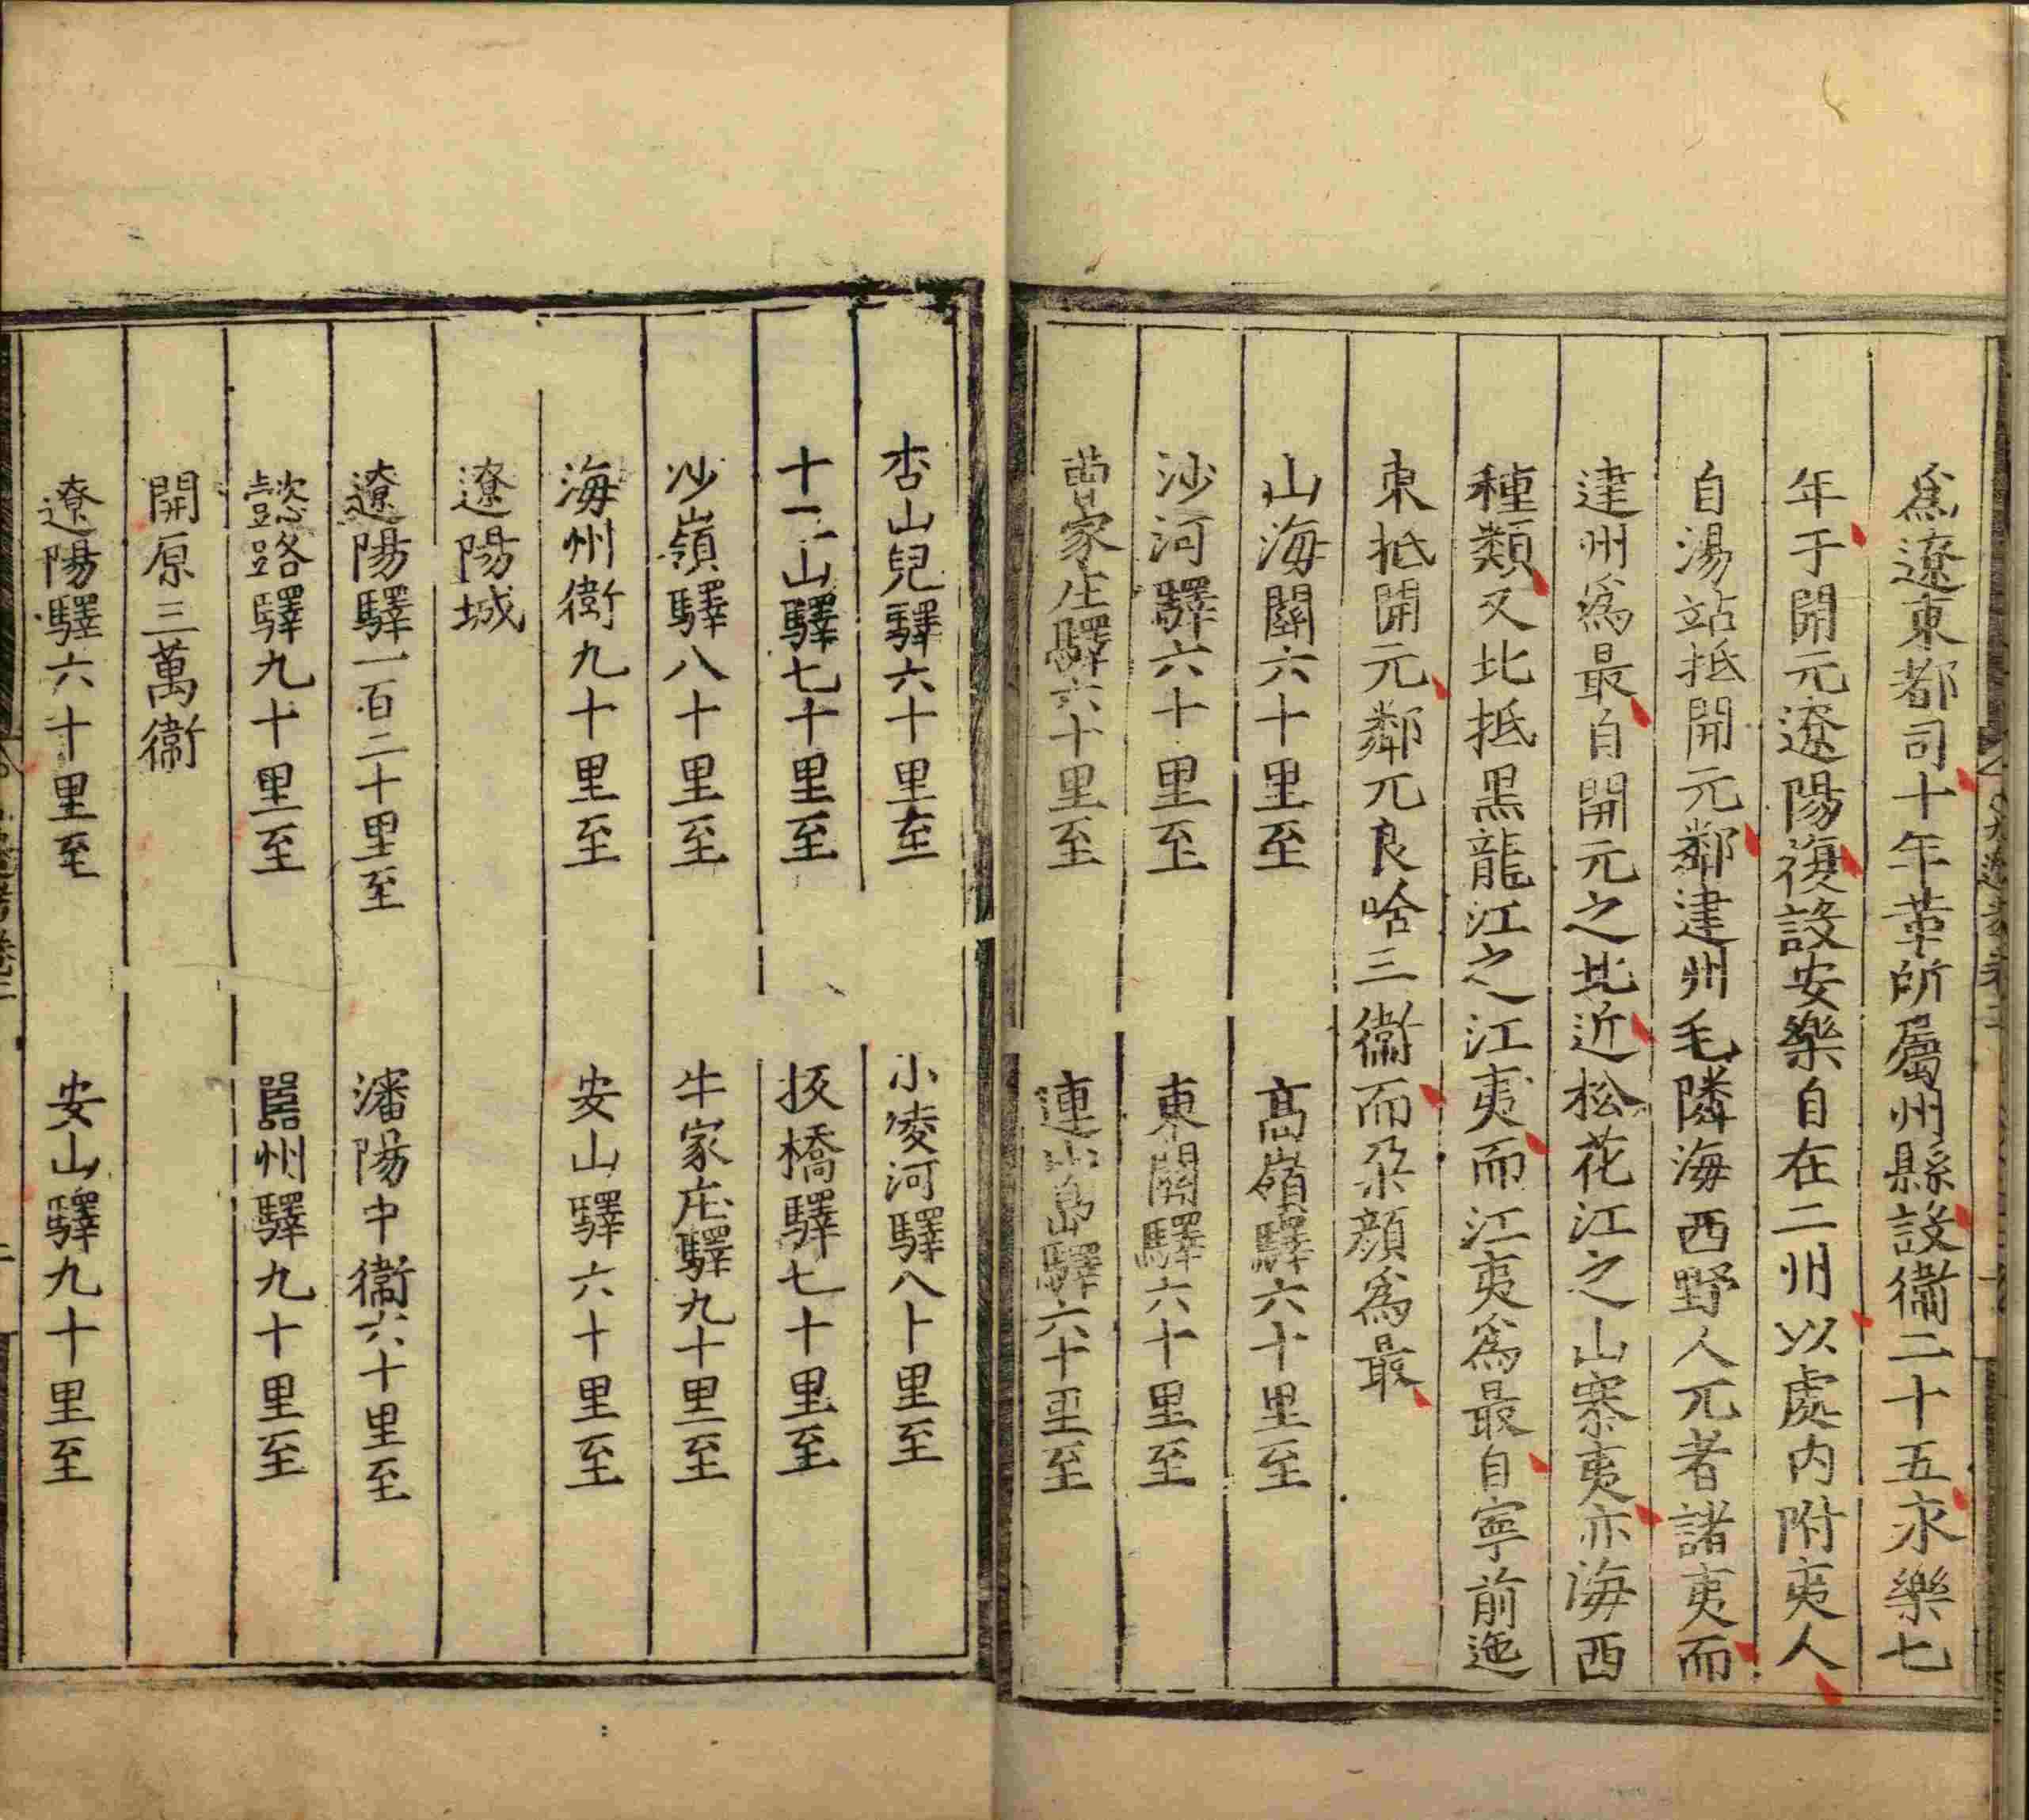 爲遼東都司十年革所屬州縣設衞二十五永樂七
年于開元遼陽復設安樂自在二州以處内附夷人
自湯站抵開元鄰建州毛隣海西野人兀者諸夷而
建州爲最自開元之北近松花江之山寨夷亦海西
種類又北抵黑龍江之江夷而江夷爲最自寧前迤
東抵開元鄰兀良哈三衞而朶顔爲最
山海關六十里至 高嶺驛六十里至
沙河驛六十里至 東關驛六十里至
曹家庄驛六十里至 連山島驛六十里至
杏山兒驛六十里至 小凌河驛八十里至
十三山驛七十里至 板橋驛七十里至
沙嶺驛八十里至 牛家庄驛九十里至
海州衞九十里至 安山驛六十里至
遼陽城
遼陽驛一百二十里至 瀋陽中衞六十里至
懿路驛九十里至 嚚州驛九十里至
開原三萬衞
遼陽驛六十里至 安山驛九十里至